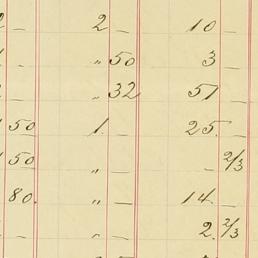 – 2 – 10 –
– " 50 3 –
– " 32 51 –
50 1. – 25. –
50 " – – 2/3
80. " – 14. –
– " – 2. 2/3